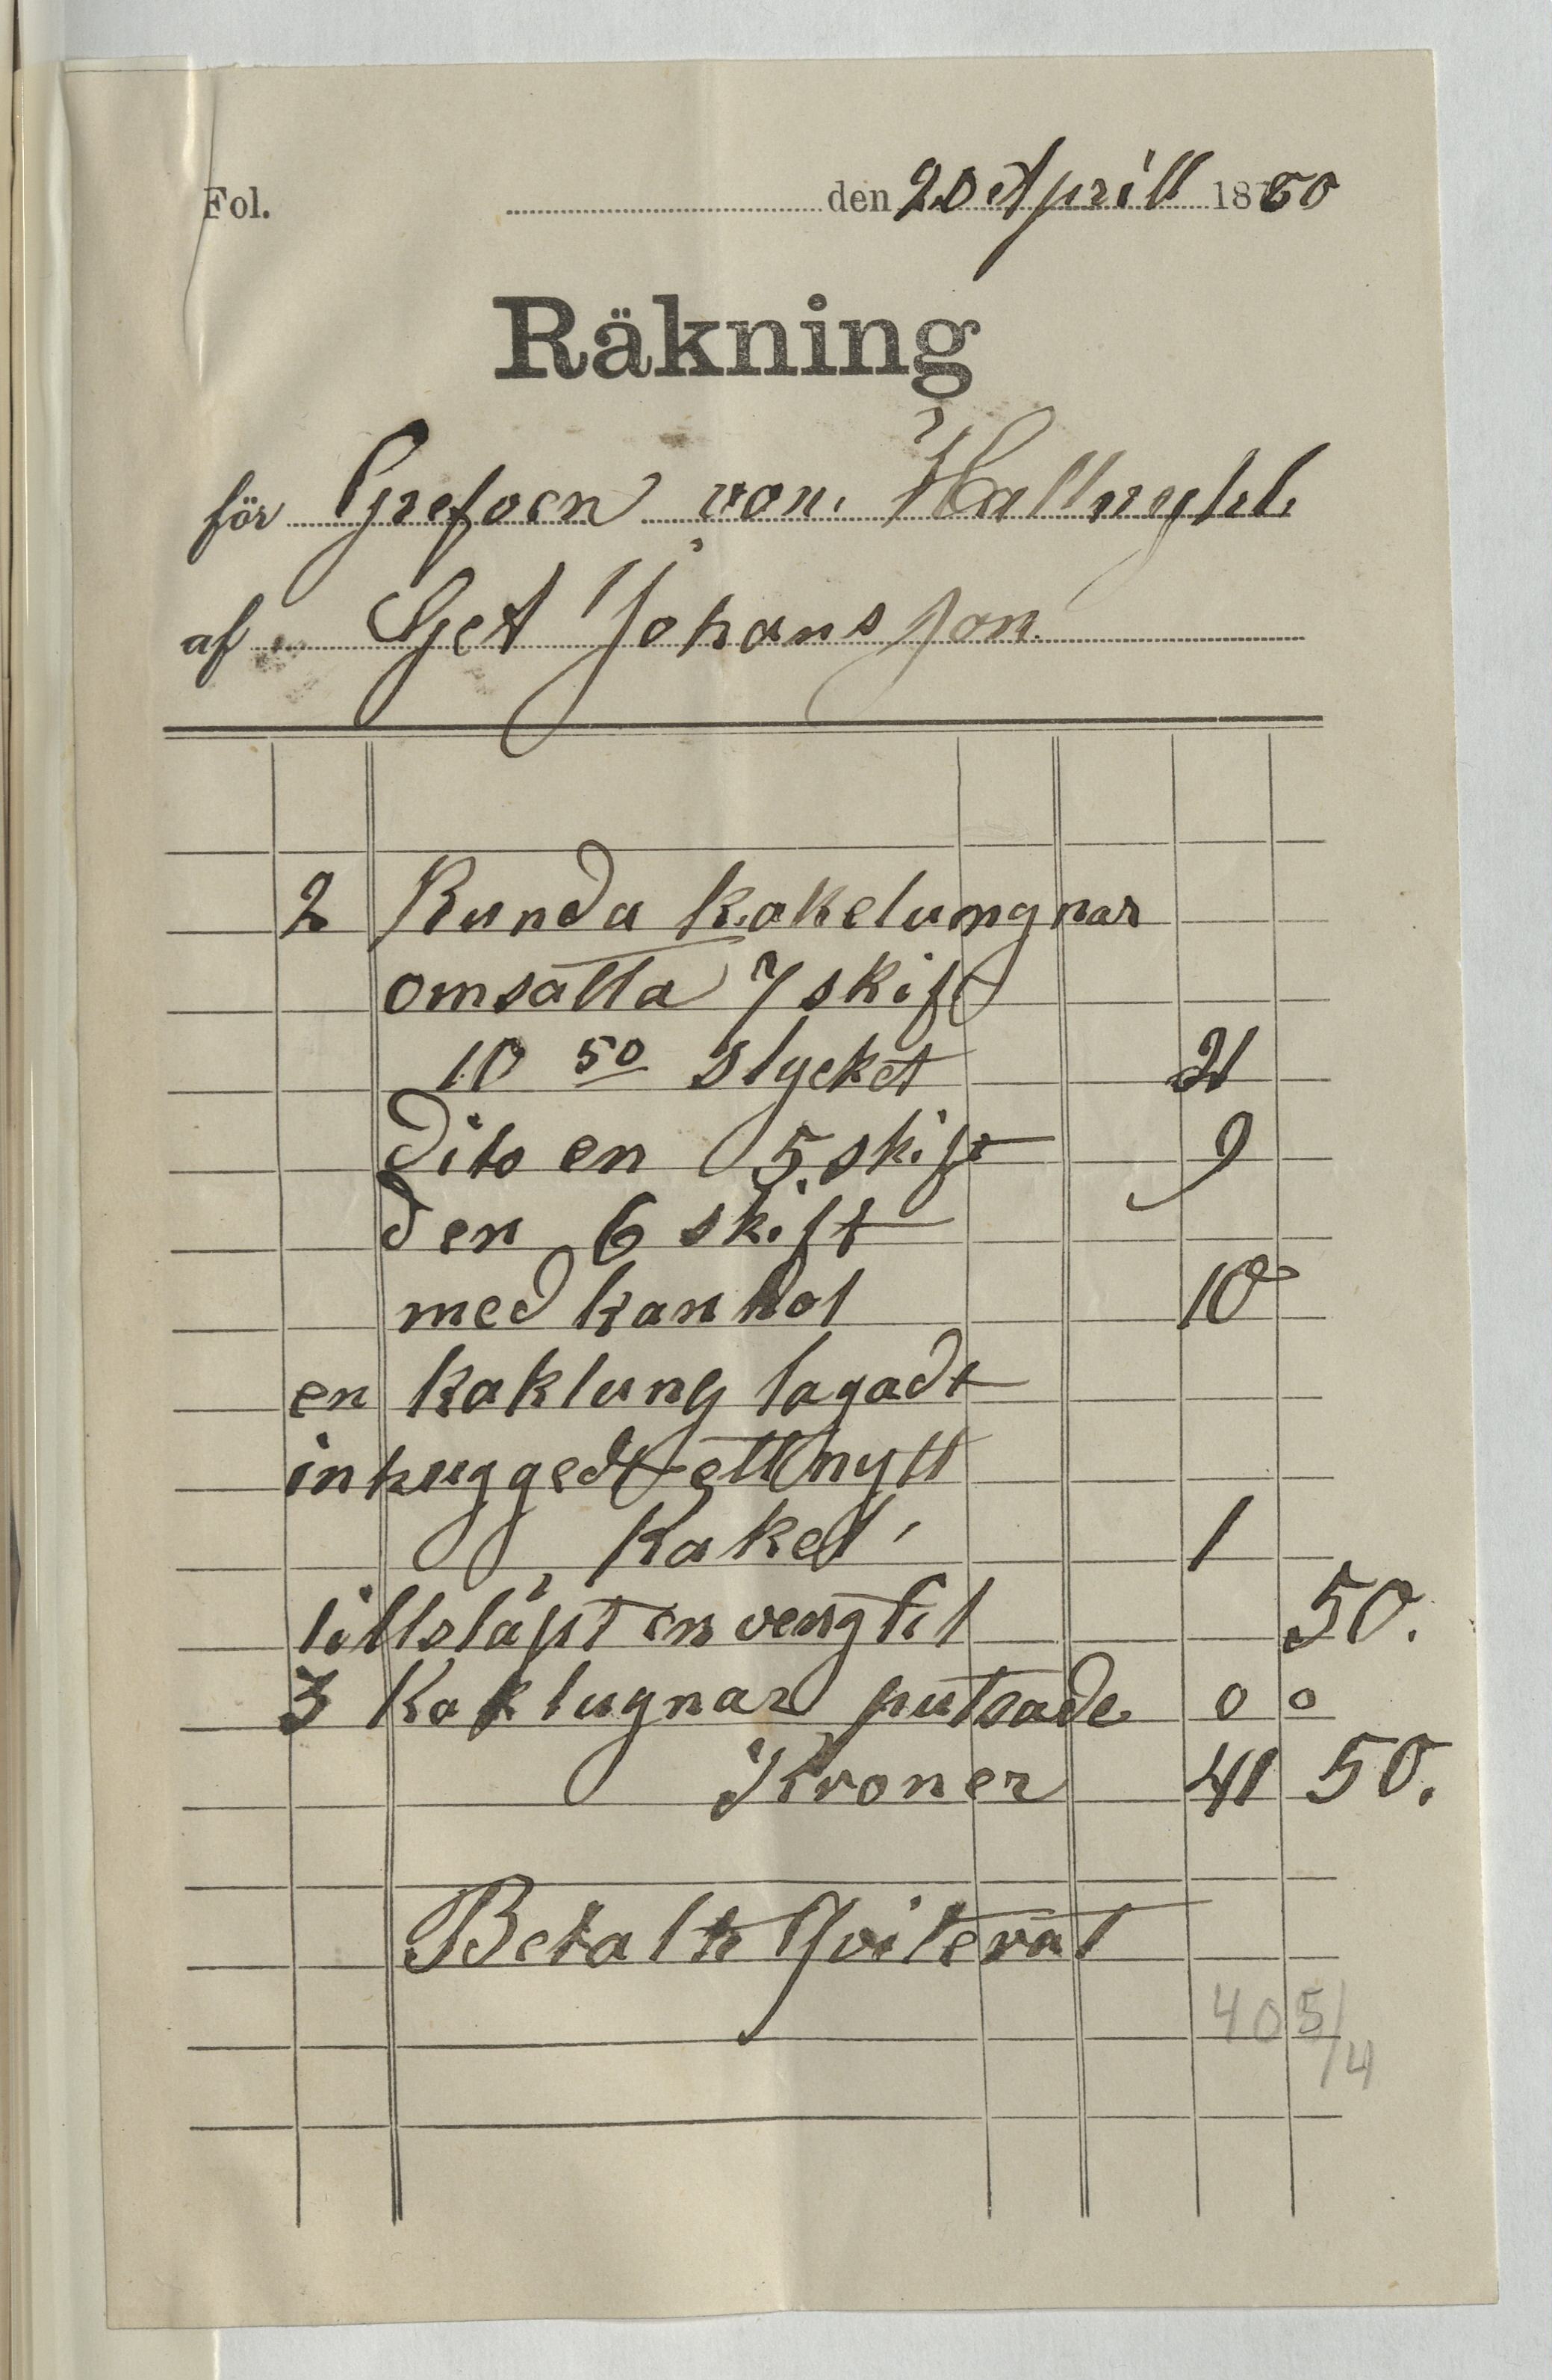 Fol. den 20 Aprill 1860
Räkning
för Grefven von Hallwyhl.
af Get Johansson.
2 Runda kakelungnar
omsatta 7 skift
10 50 stycket 21
Dito en 5 skift 9
d en 6 skift
med kanhol 10
en kaklung lagadt
inhuggedt ett nytt
Kakel 1
tillsläpt en vengtil 50.
3 Kaklugnar putsade 0 0
Kroner 41 50.
Betalt Qviterat
405/4